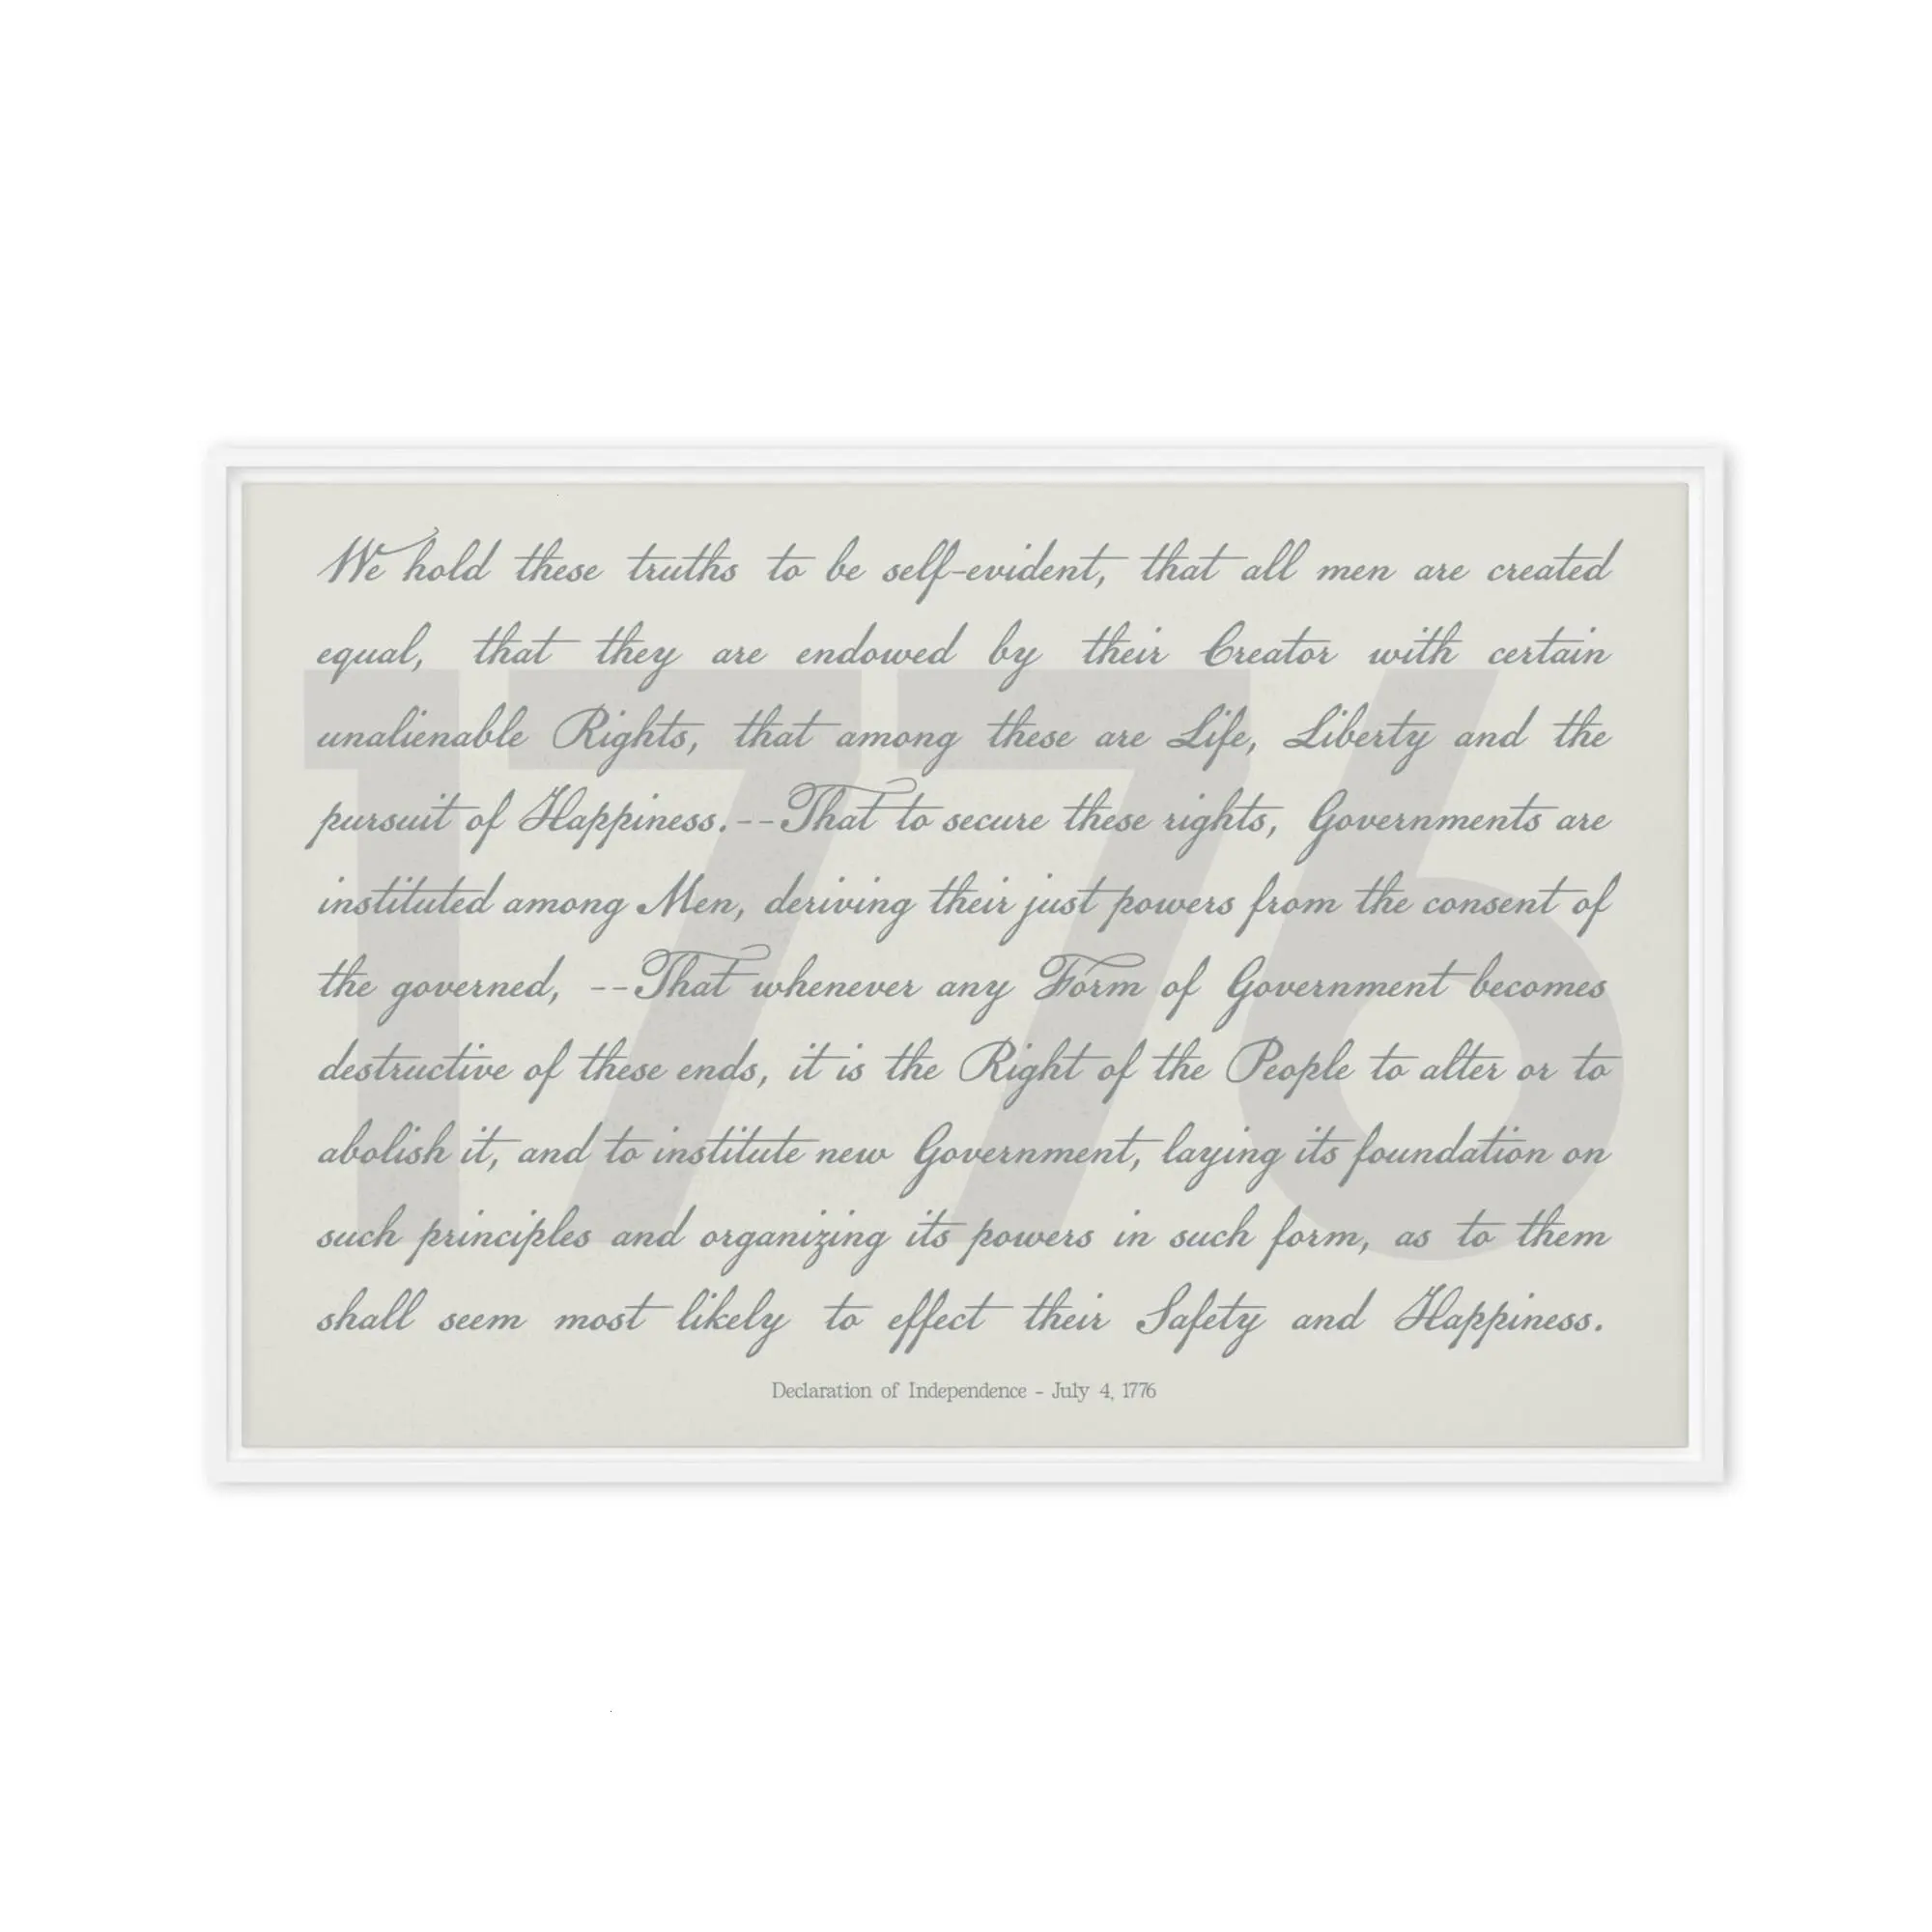 We hold these truths to be self-evident, that all men are created
equal, that they are endowed by their Creator with certain
unalienable Rights, that among these are Life, Liberty and the
pursuit of Happiness.--That to secure these rights, Governments are
instituted among Men, deriving their just powers from the consent of
the governed, --That whenever any Form of Government becomes
destructive of these ends, it is the Right of the People to alter or to
abolish it, and to institute new Government, laying its foundation on
such principles and organizing its powers in such form, as to them
shall seem most likely to effect their Safety and Happiness.
1776
Declaration of Independence - July 4, 1776